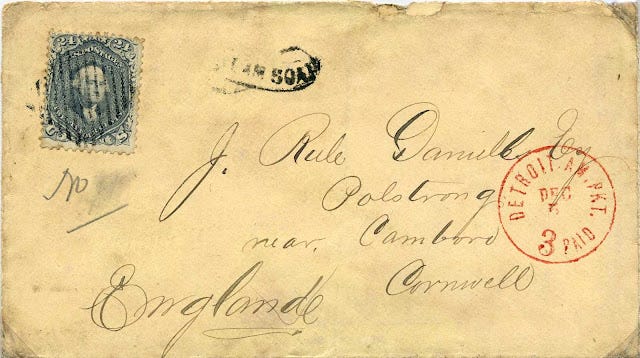 24 24
U.S. POSTAGE
J. Rule Daniell Esq
Polstrong
near. Camboro
Cornwell
England
No
DETROIT. AM. PKT.
DEC
3 PAID